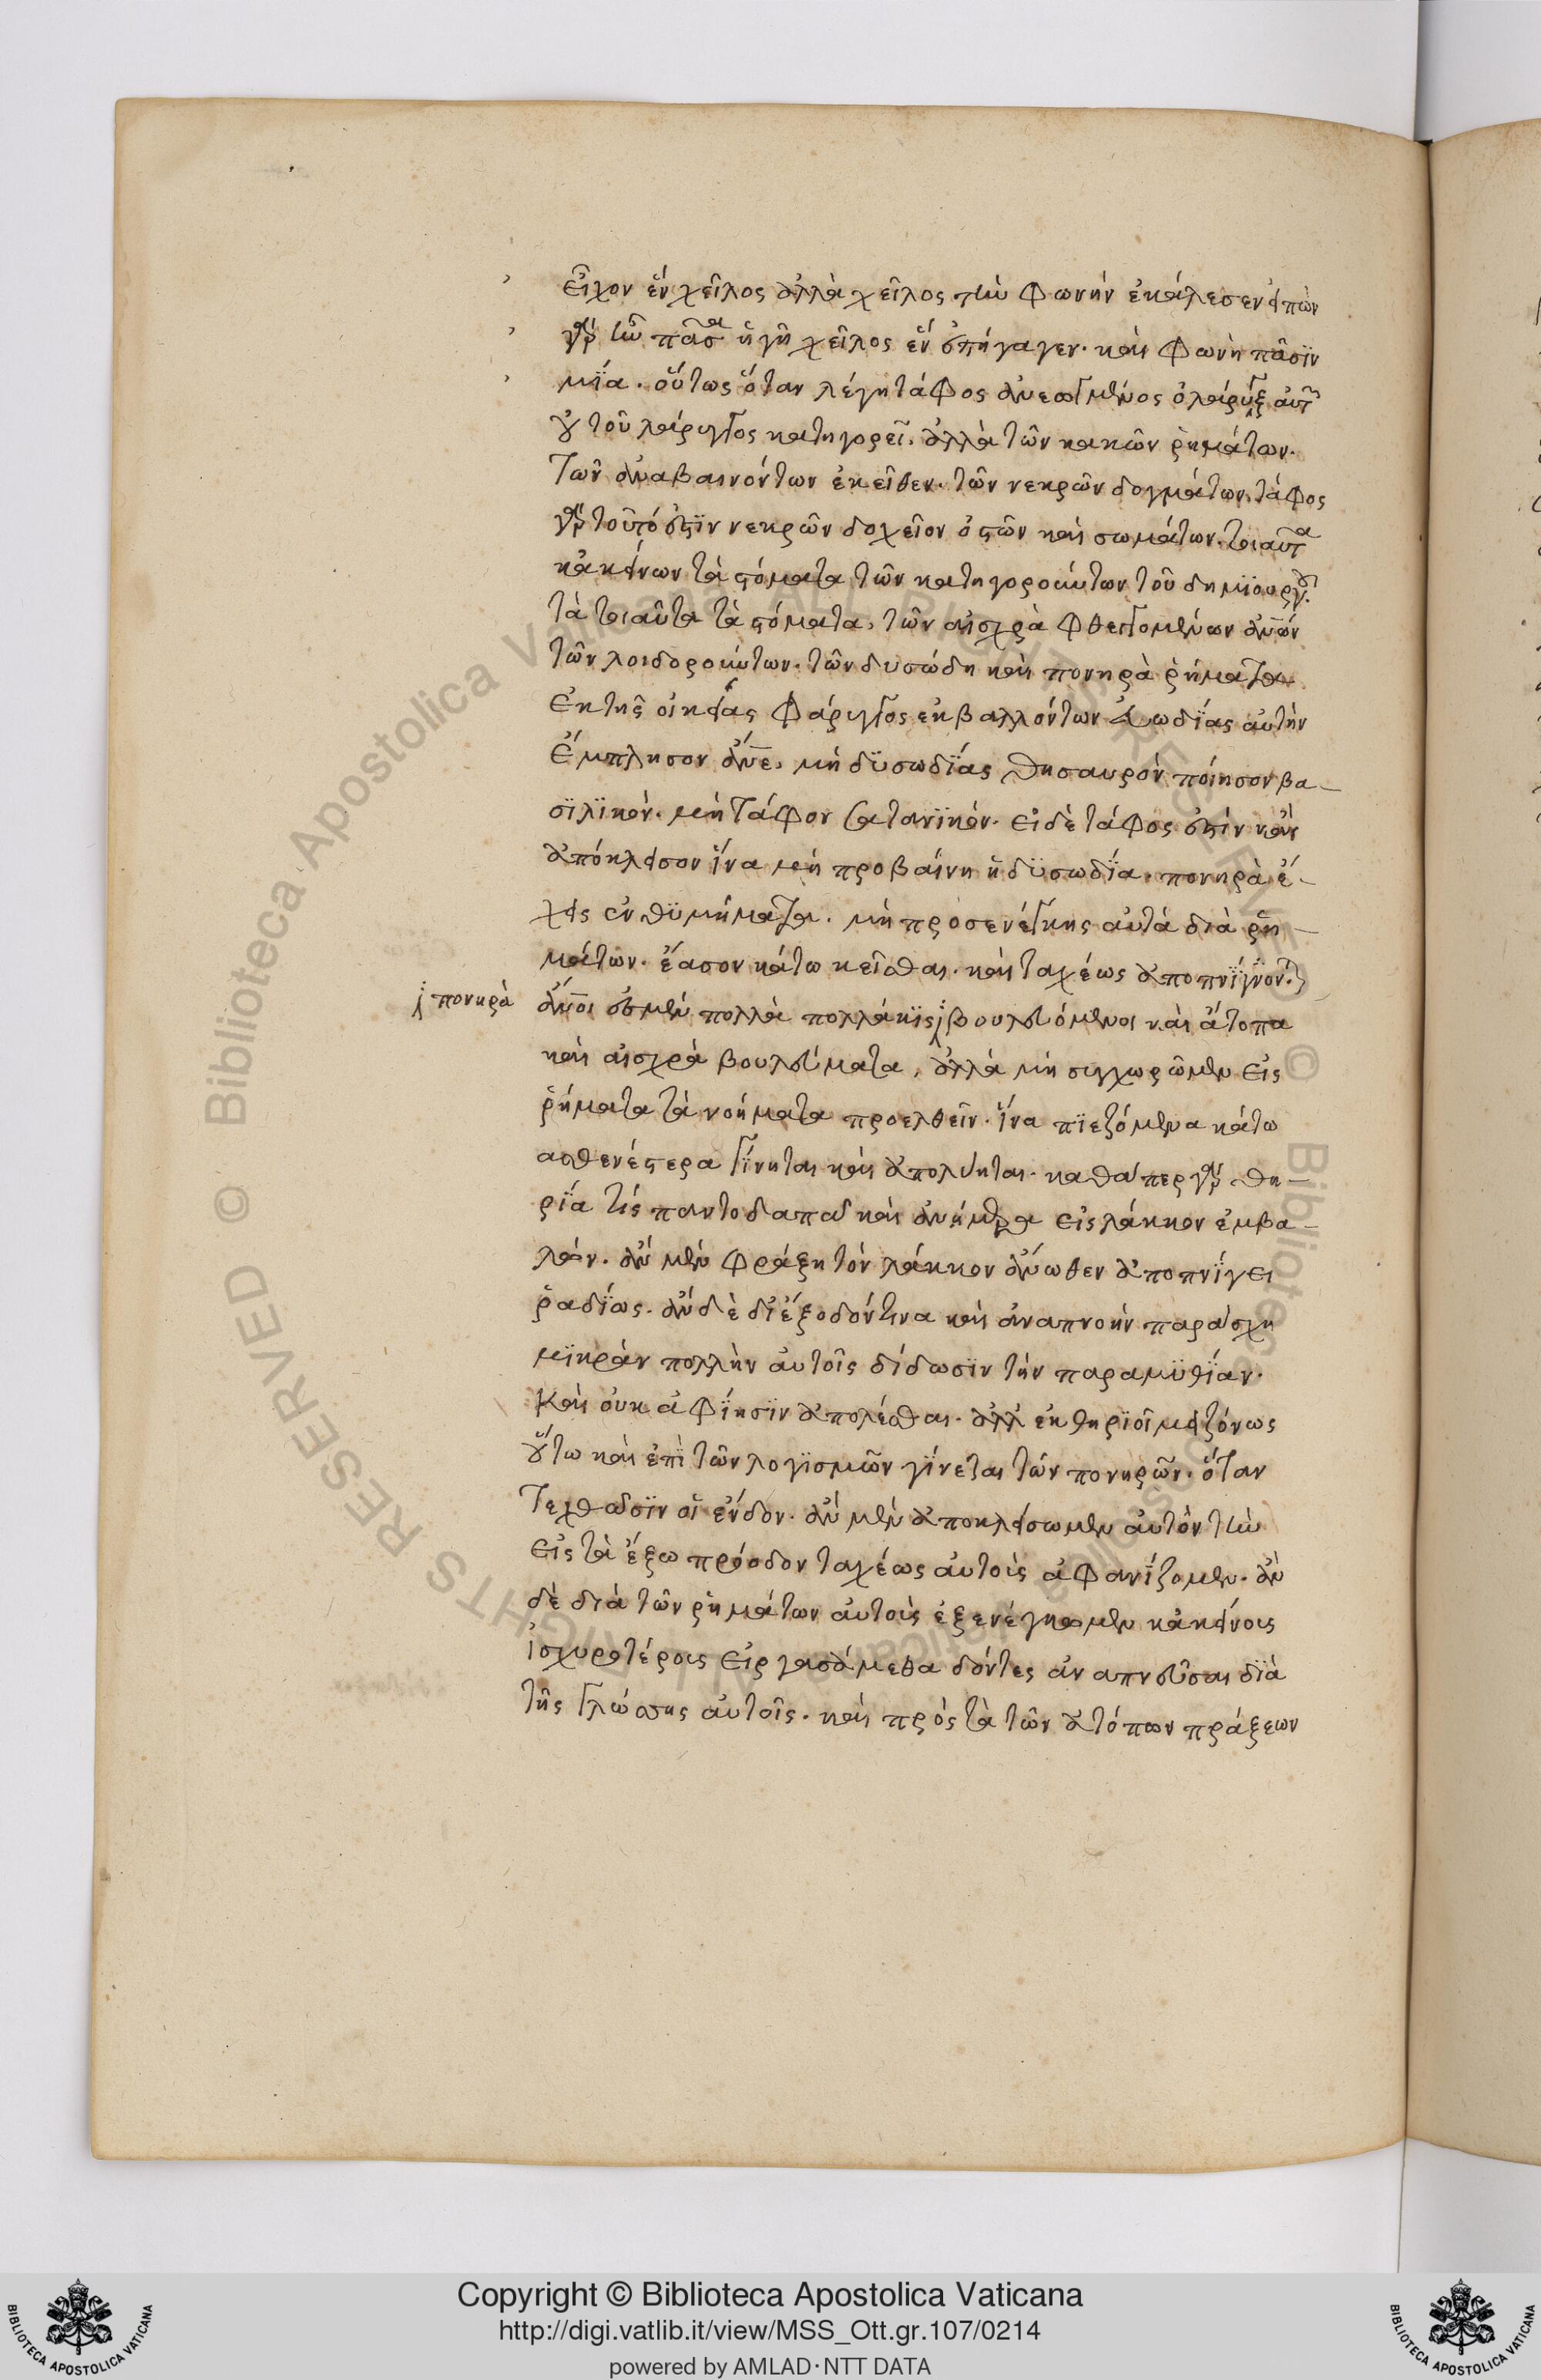 εἶχον ἓν χεῖλος ἀλλὰ χεῖλος τὴν φωνὴν ἐκάλεσεν εἰπὼν
γὰρ ἦν πᾶσα ἡ γῆ χεῖλος ἓν ἐπήγαγεν. καὶ φωνὴ πᾶσϊν
μϊά. οὕτως ὅταν λέγη τάφος ἀνεωγμένος ὁ λάρυγξ αὐτῶν
οὐ τοῦ λάρυγγος κατηγορεῖ. ἀλλὰ τῶν κακῶν ῥημάτων.
Τῶν ἀναβαινόντων ἐκεῖθεν. τῶν νεκρῶν δογμάτων. τάφος
γὰρ τοῦτό ἐστϊν νεκρῶν δοχεῖον ὀστῶν καὶ σωμάτων. τοιαῦτα
κἀκείνων τὰ στόματα τῶν κατηγορούντων τοῦ δημϊουργοῦ.
τὰ τοιαῦτα τὰ στόματα. τῶν αἰσχρὰ φθεγγομένων ἀνῶν
τῶν λοιδορούντων. τῶν δυσώδη καὶ πονηρὰ ῥήματα
Ἐκ τῆς οἰκείας φάρυγγος ἐκβαλλόντων εὐωδΐας αὐτὴν
Ἔμπλησον ἄνε. μὴ δϋσωδΐας θησαυρὸν ποίησον βα-
σϊλϊκόν. μὴ τάφον σατανϊκόν. εἰ δὲ τάφος ἐστὶν κἂν
ἀπόκλεισον ἵνα μὴ προβαίνη ἡ δϋσωδΐα. πονηρὰ ἔ-
χεις ἐνθϋμήματα. μὴ προσενέγκης αὐτὰ διὰ ῥη-
μάτων. ἔασον κάτω κεῖσθαι. καὶ ταχέως ἀποπνΐγνονται
ἄνοι ἐσμὲν πολλὰ πολλάκϊς βουλευόμενοι καὶ ἄτοπα
πονηρὰ
καὶ αἰσχρὰ βουλεύματα, ἀλλὰ μὴ συγχωρῶμεν εἰς
ῥήματα τὰ νοήματα προελθεῖν. ἵνα πϊεζόμενα κάτω
ασθενέστερα γΐνηται καὶ ἀπολεῖται. καθάπερ γὰρ θη-
ρΐα τὶς παντοδαπὰ καὶ ἀνήμερα εἰς λάκκον ἐμβα-
λών. ἂν μὲν φράξη τὸν λάκκον ἄνωθεν ἀποπνΐγει
ῥαδΐως. ἂν δὲ διέξοδόν τινα καὶ ἀναπνοὴν παράσχη
μϊκρὰν πολλὴν αὐτοῖς δίδωσϊν τὴν παραμϋθΐαν.
Καὶ οὐκ ἀφΐησϊν ἀπολέσθαι. ἀλλ' ἐκθηρϊοῖ μειζόνως
οὕτω καὶ ἐπὶ τῶν λογϊσμῶν γΐνεται τῶν πονηρῶν. ὅταν
Τεχθῶσϊν οἱ ἔνδον. ἂν μὲν ἀποκλείσωμεν αὐτὸν τὴν
Εἰς τὰ ἔξω πρόοδον ταχέως αὐτοὺς ἀφανΐζομεν. ἂν
δὲ διὰ τῶν ῥημάτων αὐτοὺς ἐξενέγκωμεν κἀκείνοις
ἰσχυροτέροις εἰργασάμεθα δόντες ἀναπνεῦσαι δϊὰ
τῆς γλώσσης αὐτοῖς. καὶ πρὸς τὰ τῶν ἀτόπων πράξεων
Copyright © Biblioteca Apostolica Vaticana
http://digi.vatlib.it/view/MSS_Ott.gr.107/0214
powered by AMLAD·NTT DATA